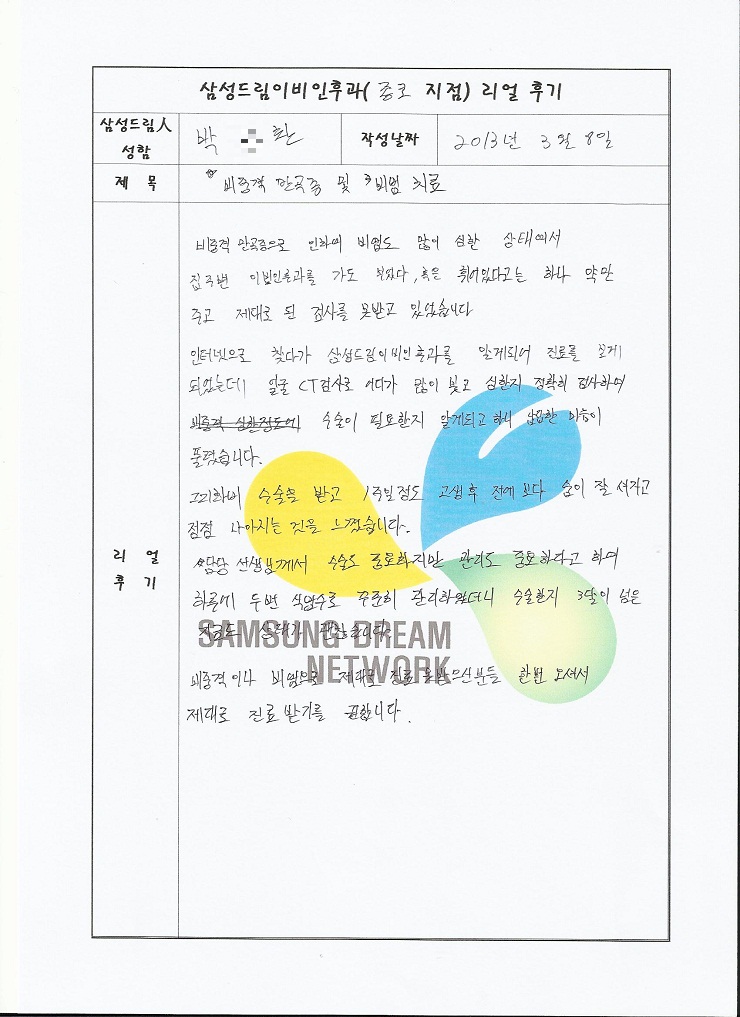 삼성드림이비인후과( 종로 지점) 리얼 후기
삼성드림人 성함
박 환
작성날짜
2013년 3월 8일
제 목
비중격 만곡증 및 비염 치료
리 얼 후 기
비중격 만곡증으로 인하여 비염도 많이 심한 상태에서
집주변 이비인후과를 가도 부었다, 혹은 휘어있다고는 하나 약만
주고 제대로 된 검사를 못받고 있었습니다
인터넷으로 찾다가 삼성드림이비인후과를 알게되어 진료를 보게
되었는데 얼굴 CT검사로 어디가 많이 붓고 심한지 정확히 검사하여
비중격 심한정도에 수술이 필요한지 알게되고 하니 답답한 마음이
풀렸습니다.
그리하여 수술을 받고 1주일정도 고생후 전에보다 숨이 잘 쉬지고
점점 나아지는 것을 느꼈습니다.
담당 선생님께서 수술도 중요하지만 관리도 중요하다고 하여
하루에 두번 식염수로 꾸준히 관리하였더니 수술한지 3달이 넘은
지금도 상태가 괜찮습니다.
SAMSUNG DREAM
NETWORK
비중격이나 비염으로 제대로 진료 못받으신분들 한번 오셔서
제대로 진료받기를 권합니다.